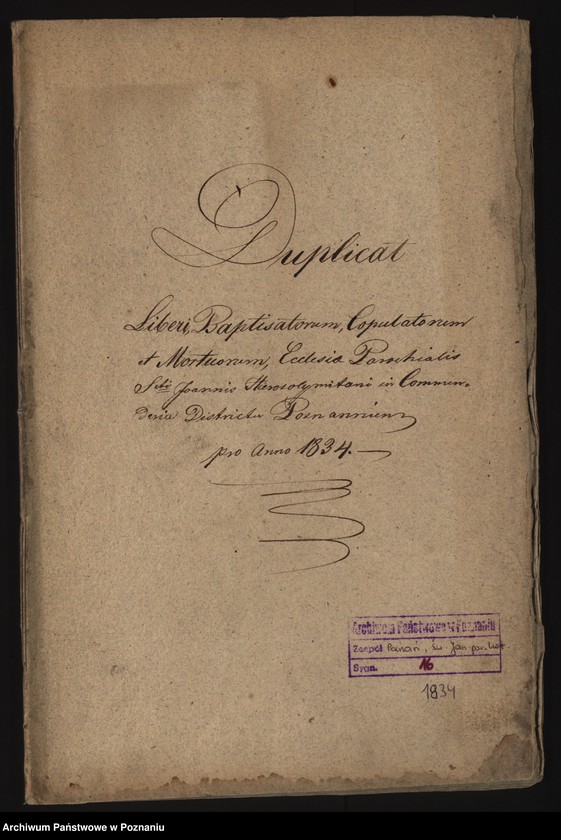 Duplicat
Liberi, Baptisatorum, Copulatorum
et Mortuorum, Ecclesiæ Parochialis
Scti Joannis Hierosolymitani in Commen-
deria Districtu Poznannien
pro Anno 1834.
Archiwum Państwowe w Poznaniu
Zespół Poznań, św. Jan par. kat.
Sygn. 16
1834
Archiwum Państwowe w Poznaniu